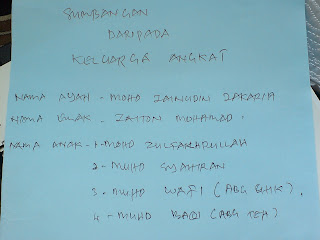 SUMBANGAN
DARIPADA
KELUARGA ANGKAT
NAMA AYAH - MOHD ZAINUDIN ZAKARIA
NAMA EMAK - ZAITON MOHAMAD.
NAMA ANAK - 1 - MOHD ZULFAKHRULLAH
2 - MUHD SYAHIRAN
3 - MUHD WAFI (ABG CHIK).
4 - MUHD BADI (ABG TEH)